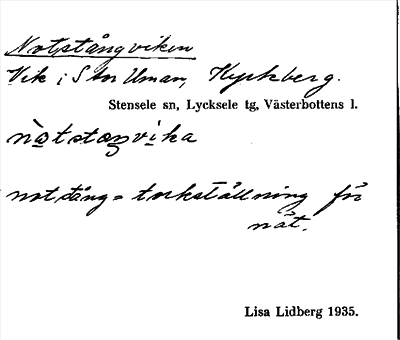 Notstångviken
Vik i Stor Uman, Kyrkberg.
Stensele sn, Lycksele tg, Västerbottens l.
nòtstaŋvika
notstång = torkställning för
nät.
Lisa Lidberg 1935.